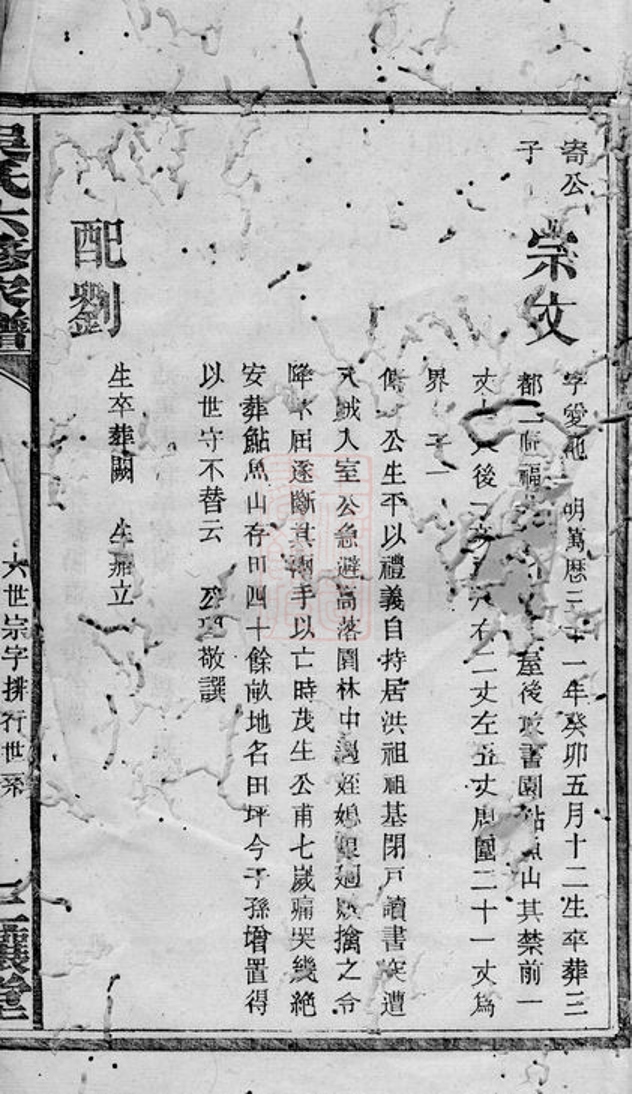 寄公
子
崇文
字愛 明萬歷三十一年癸卯五月十二生卒葬三
都 福 屋後 書園鮎魚山其禁前一
丈 後 右二丈左五丈周圍二十一丈為
界 子一
傳 公生平以禮義自持居洪祖祖基閉戶讀書突遭
賊入室公急避高落園林中遇姪媳 擒之令
降不屈遂斷其兩手以亡時茂生公甫七歲痛哭幾絕
安葬鮎魚山存田四十餘畝地名田坪今子孫增置得
以世守不替云 敬譔
配劉
生卒葬闕 生茄立
吳氏六修家譜
六世崇字排行世系
三讓堂